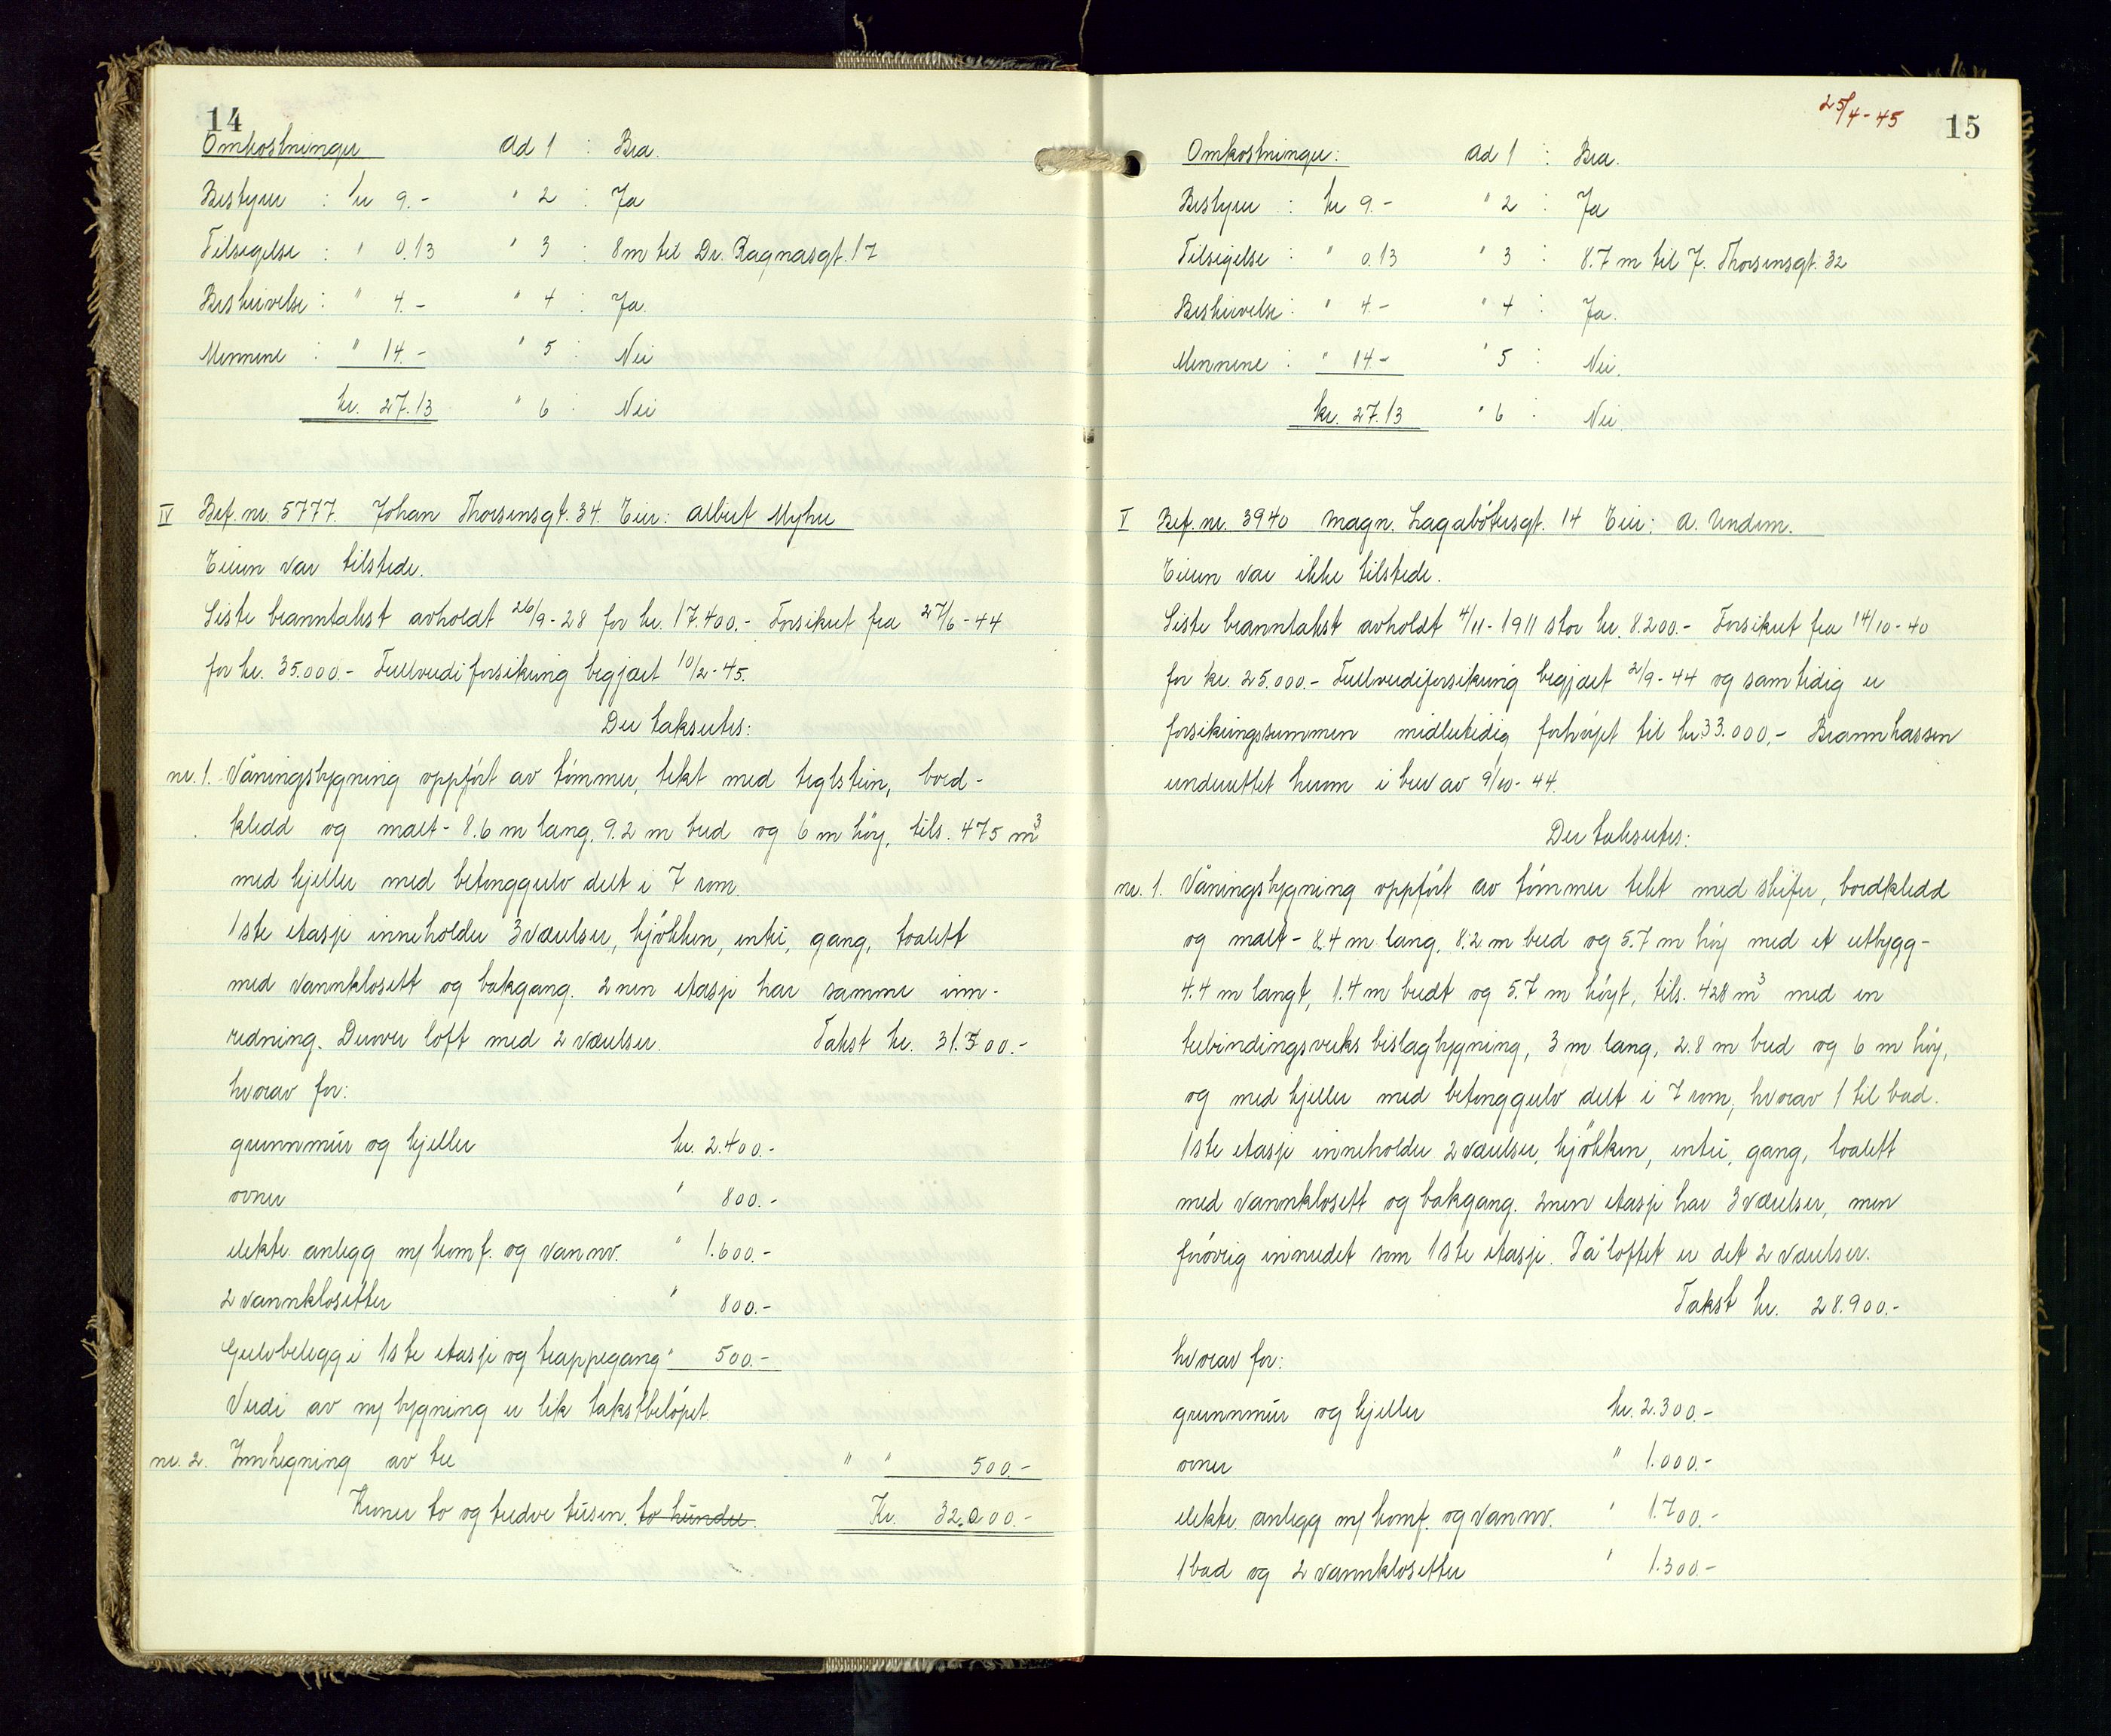 14
Omkostninger ad 1 : Bra.
Bestyrer : kr 9.- " 2 : Ja
Tilsigelse : " 0.13 " 3 : 8 m til Dr. Ragnasgt. 17
Beskrivelse : " 4.- " 4 : Ja.
Mennene : " 14.- " 5 : Nei
kr. 27.13 " 6 : Nei
IV Brf. nr. 5777. Johan Thorsensgt. 34. Eier: Albert Myhre
Eieren var tilstede.
Siste branntakst avholdt 26/9-28 for kr. 17.400.- Forsikret fra 27/6-44
for kr. 35.000.- Fullverdiforsikring begjært 10/2-45.
Der takseres:
nr. 1. Våningsbygning oppført av tømmer, tekt med teglstein, bord-
kledd og malt - 8.6 m lang, 9.2 m bred og 6 m høy, tils. 475 m3
med kjeller med betonggulv delt i 7 rom.
1ste etasje inneholder 3 værelser, kjøkken, entré, gang, toalett
med vannklosett og bakgang. 2nen etasje har samme inn-
redning. Derover loft med 2 værelser. Takst kr. 31.500.-
hvorav for:
grunnmur og kjeller kr. 2.400.-
ovner " 800.-
elektr. anlegg m/ komf. og vannv. " 1.600.-
2 vannklosetter " 800.-
Gulvbelegg i 1ste etasje og trappegang " 500.-
Verdi av ny bygning er lik takstbeløpet.
nr. 2. Innhegning av tre " " 500.-
Kroner to og tredve tusen. to hundre. Kr. 32.000.-
25/4-45
15
Omkostninger: ad 1 : Bra.
Bestyrer : kr 9.- " 2 : Ja
Tilsigelse : " 0.13 " 3 : 8.7 m til J. Thorsensgt. 32
Beskrivelse : " 4.- " 4 : Ja.
Mennene : " 14.- " 5 : Nei.
kr. 27.13 " 6 : Nei.
V Brf. nr. 3940 Magn. Lagabøtersgt. 14 Eier: A. Undem.
Eieren var ikke tilstede.
Siste branntakst avholdt 4/11-1911 stor kr. 8.200.- Forsikret fra 14/10-40
for kr. 25.000.- Fullverdiforsikring begjært 2/9-44 og samtidig er
forsikringssummen midlertidig forhøyet til kr 33.000.- Brannkassen
underrettet herom i brev av 9/10-44.
Der takseres:
nr. 1. Våningsbygning oppført av tømmer tekt med skifer, bordkledd
og malt - 8.4 m lang, 8.2 m bred og 5.7 m høy med et utbygg -
4.4 m langt, 1.4 m bredt og 5.7 m høyt, tils. 428 m3 med en
trebindingsverks bislagbygning, 3 m lang, 2.8 m bred og 6 m høy,
og med kjeller med betonggulv delt i 7 rom, hvorav 1 til bad.
1ste etasje inneholder 2 værelser, kjøkken, entré, gang, toalett
med vannklosett og bakgang. 2nen etasje har 3 værelser, men
forøvrig innredet som 1ste etasje. På loftet er det 2 værelser.
Takst kr. 28.900.-
hvorav for:
grunnmur og kjeller kr. 2.300.-
ovner " 1.000.-
elektr. anlegg m/ komf. og vannv. " 1.700.-
1 bad og 2 vannklosetter " 1.300.-